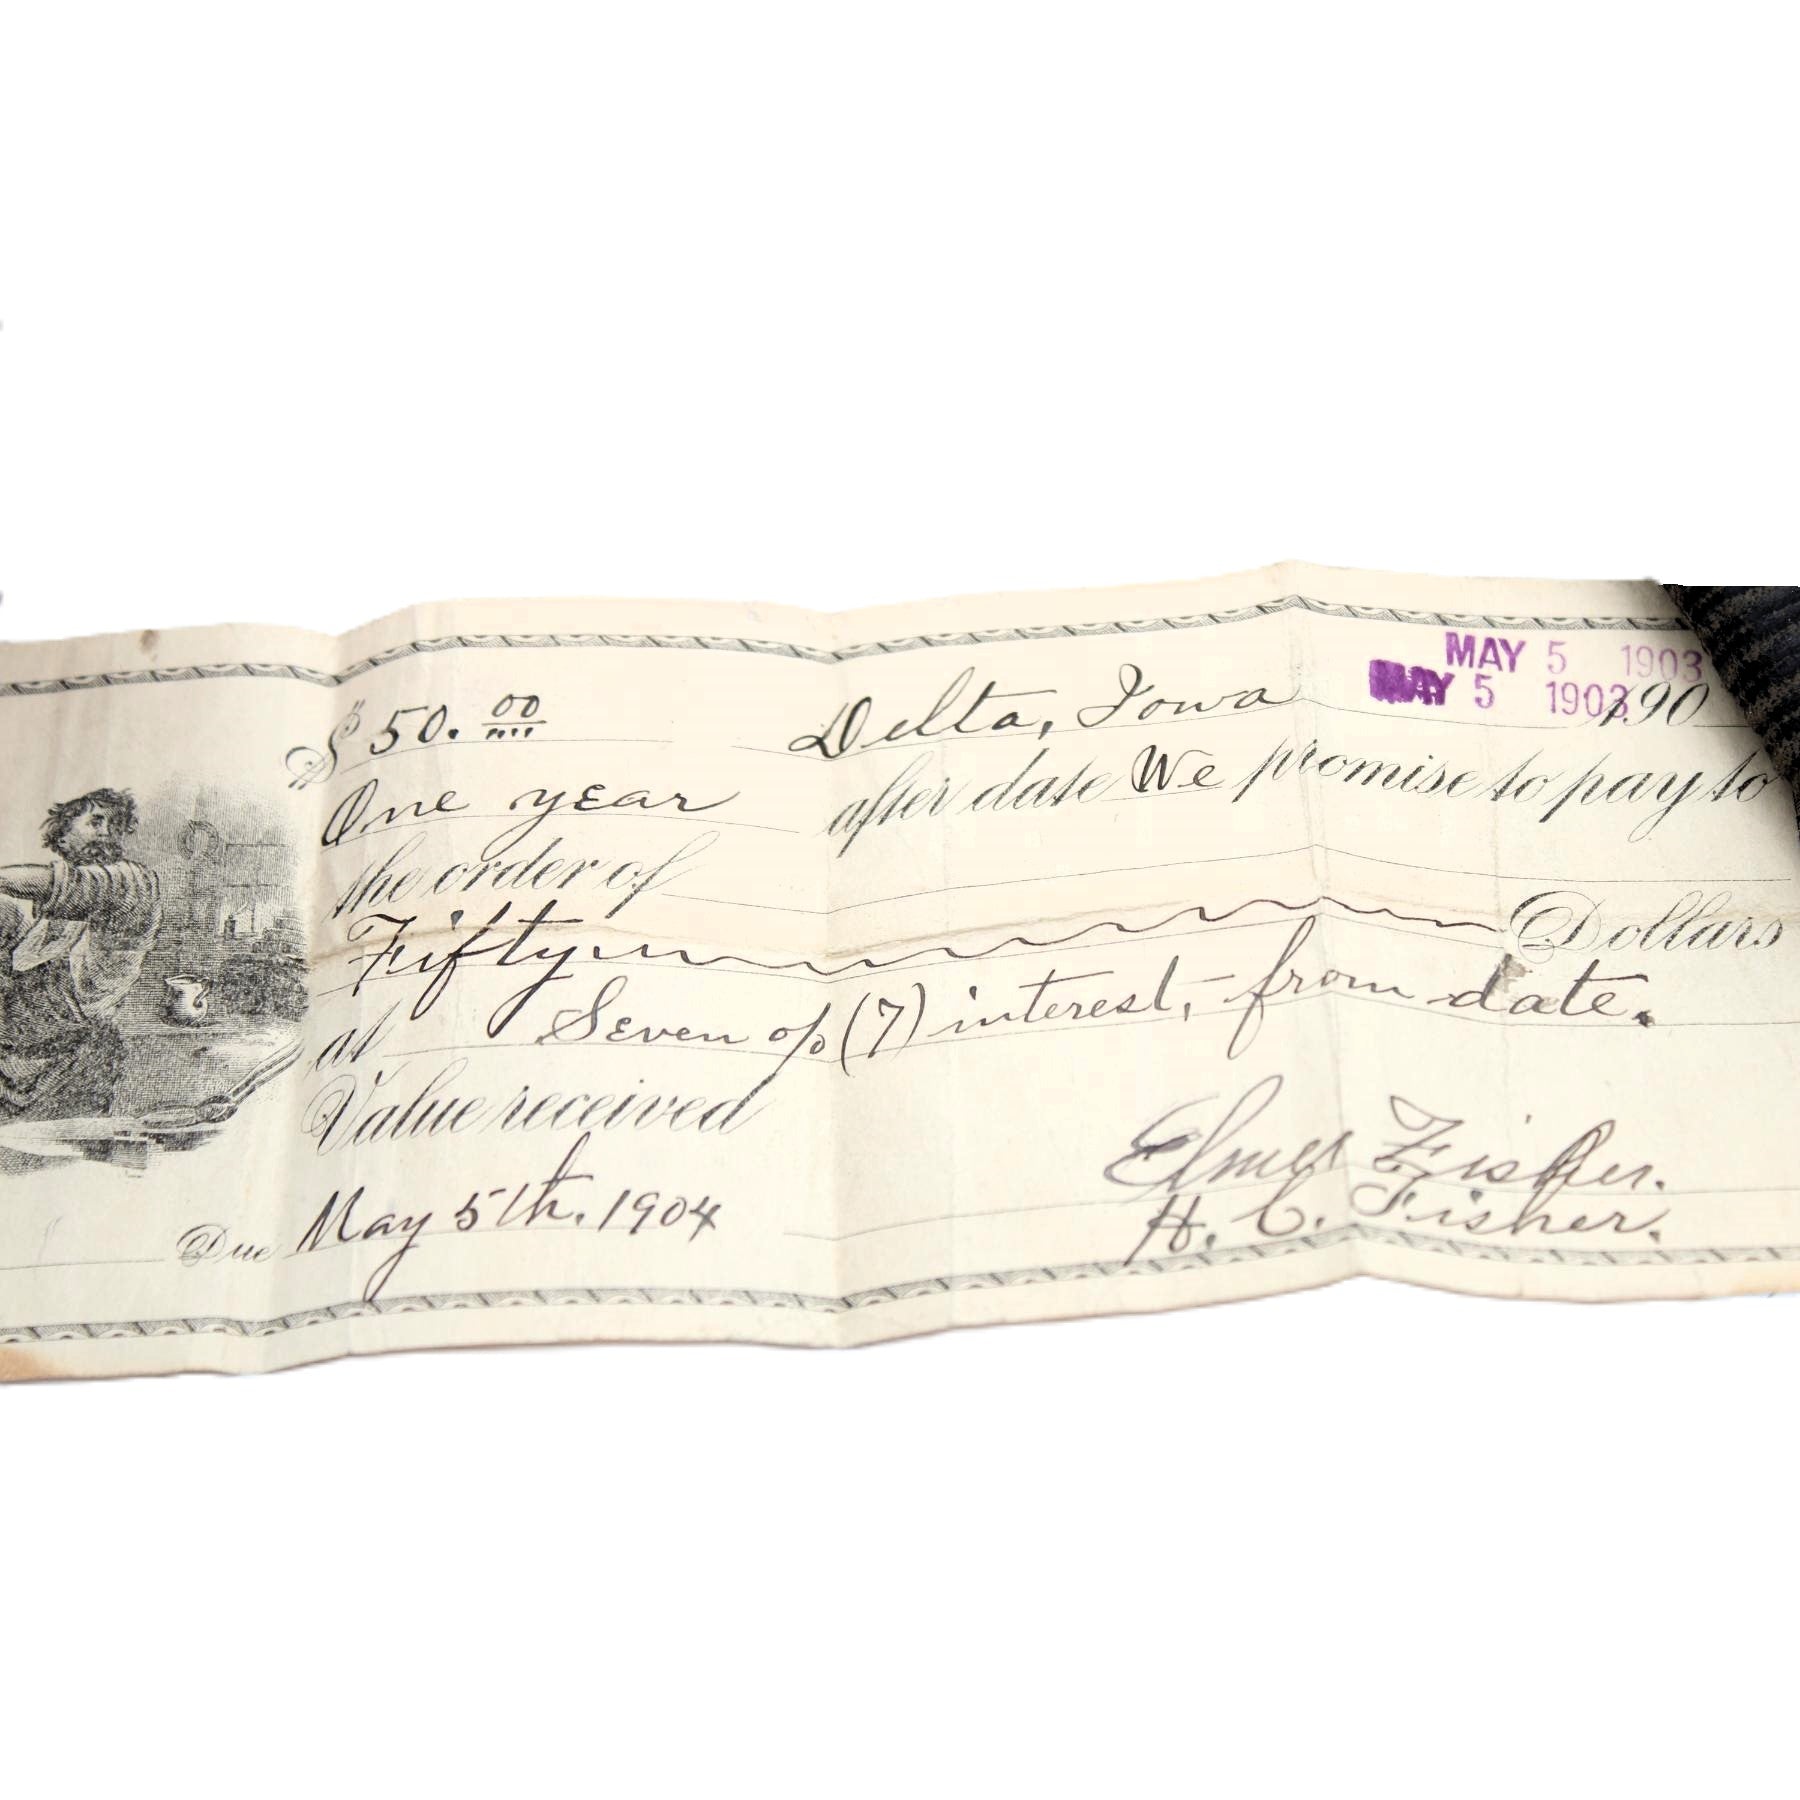 MAY 5 1903
$ 50.00 Delta, Iowa MAY 5 1903 190
One year after date We promise to pay to
the order of
Fifty Dollars
at Seven % (7) interest, from date.
Value received
Elmer Fisher.
Due May 5th. 1904 H. C. Fisher.